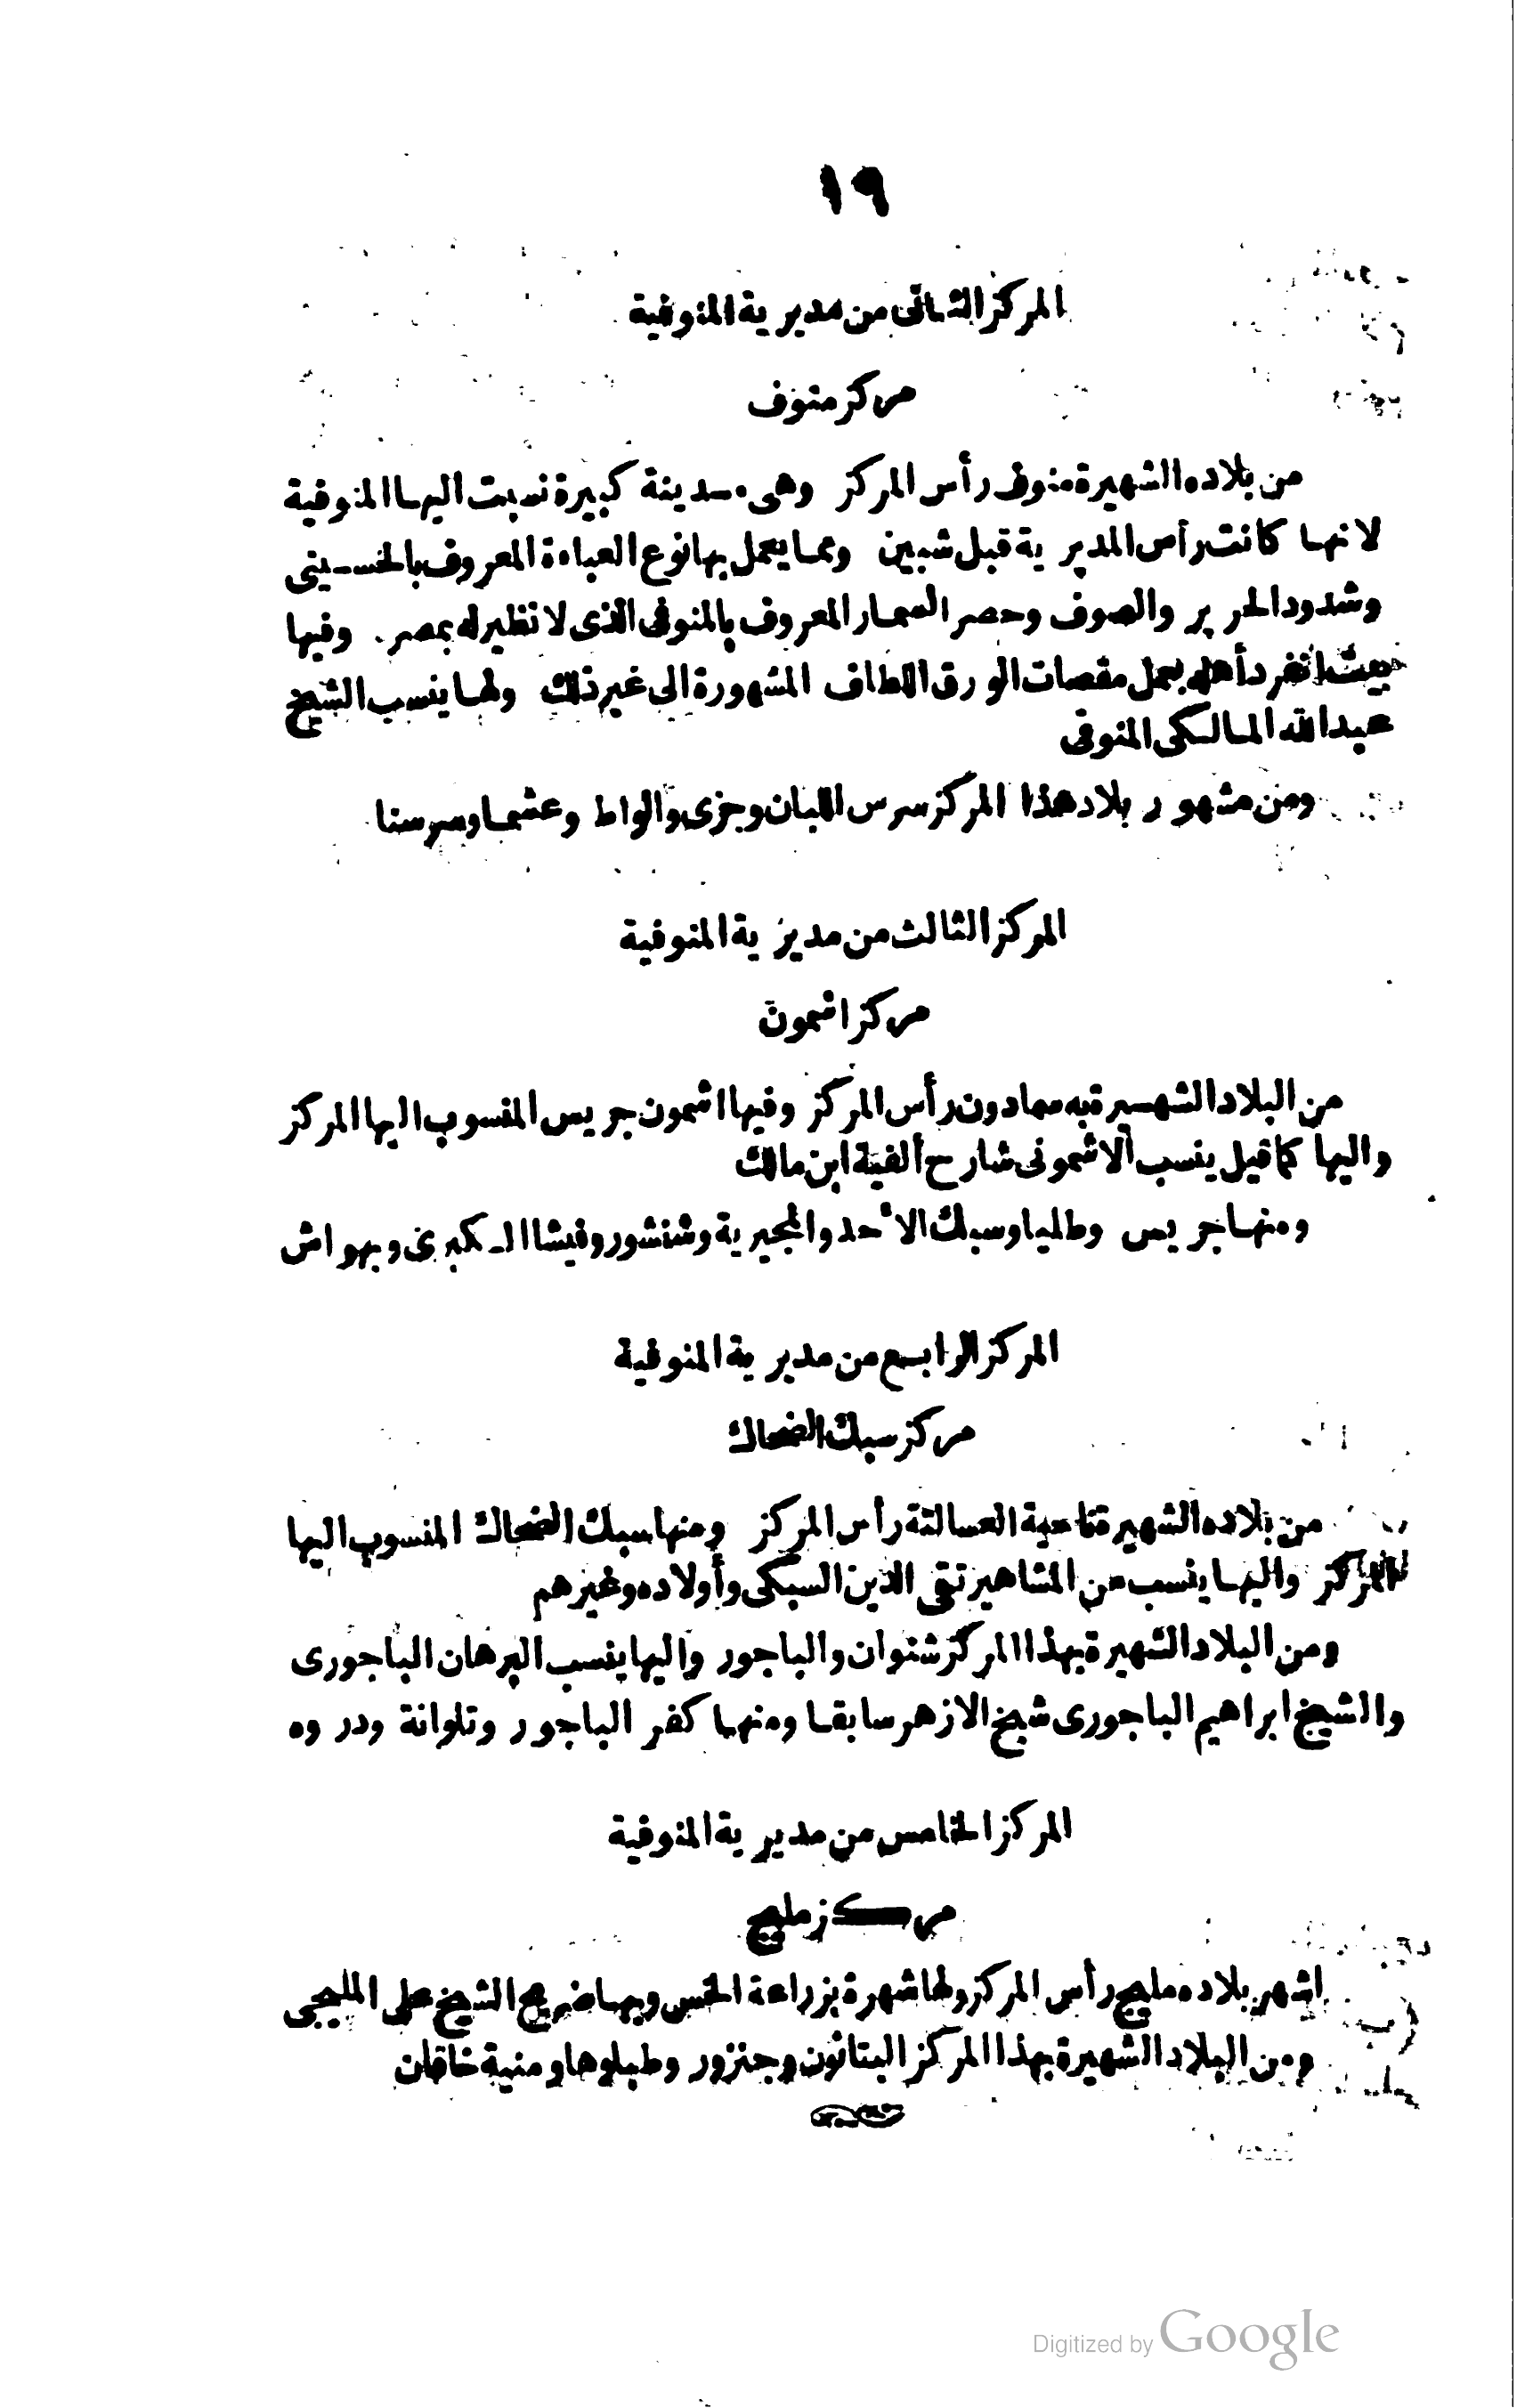 ١٩
المركز الثانى من مديرية المنوفية
مركز منوف
من بلاده الشهيرة منوف رأس المركز وهى مدينة كبيرة نسبت اليها المنوفية
لانها كانت رأس المديرية قبل شبين ومما يعمل بها نوع العباءة المعروف بالخسينى
وشدود الحرير والصوف وحصر السمار المعروف بالمنوفى الذى لا نظير له بمصر. وفيها
بيت انفرد أهله بعمل مقصات الورق اللطاف المشهورة الى غير ذلك ولها ينسب الشيخ
عبد الله المالكى المنوفى
ومن مشهور بلاد هذا المركز سرس الليان وجزى والواط وعشما وسرسنا
المركز الثالث من مديرية المنوفية
مركز اشمون
من البلاد الشهيرة به سمادون رأس المركز وفيها اشمون جريس المنسوب اليها المركز
واليها كما قيل ينسب الاشمونى شارح ألفية ابن مالك
ومنها جريس وطليا وسبك الأحد والنجيرية وشنشور وفيشا الكبرى وبهواش
المركز الرابع من مديرية المنوفية
مركز سبك الضحاك
من بلاده الشهيرة ناحية العسالتة رأس المركز ومنها سبك الضحاك المنسوب اليها
المركز واليها ينسب من المشاهير تقى الدين السبكى وأولاده وغيرهم
ومن البلاد الشهيرة بهذا المركز شنوان والباجور واليها ينسب البرهان الباجورى
والشيخ ابراهيم الباجورى شيخ الازهر سابقا ومنها كفر الباجور وتلوانة ودروه
المركز الخامس من مديرية المنوفية
مركز مليج
اشهر بلاده مليج رأس المركز ولها شهرة بزراعة الخس وبها ضريح الشيخ على المليجى
ومن البلاد الشهيرة بهذا المركز البتانون وجنزور وطبلوها ومنية خاقان
Digitized by Google